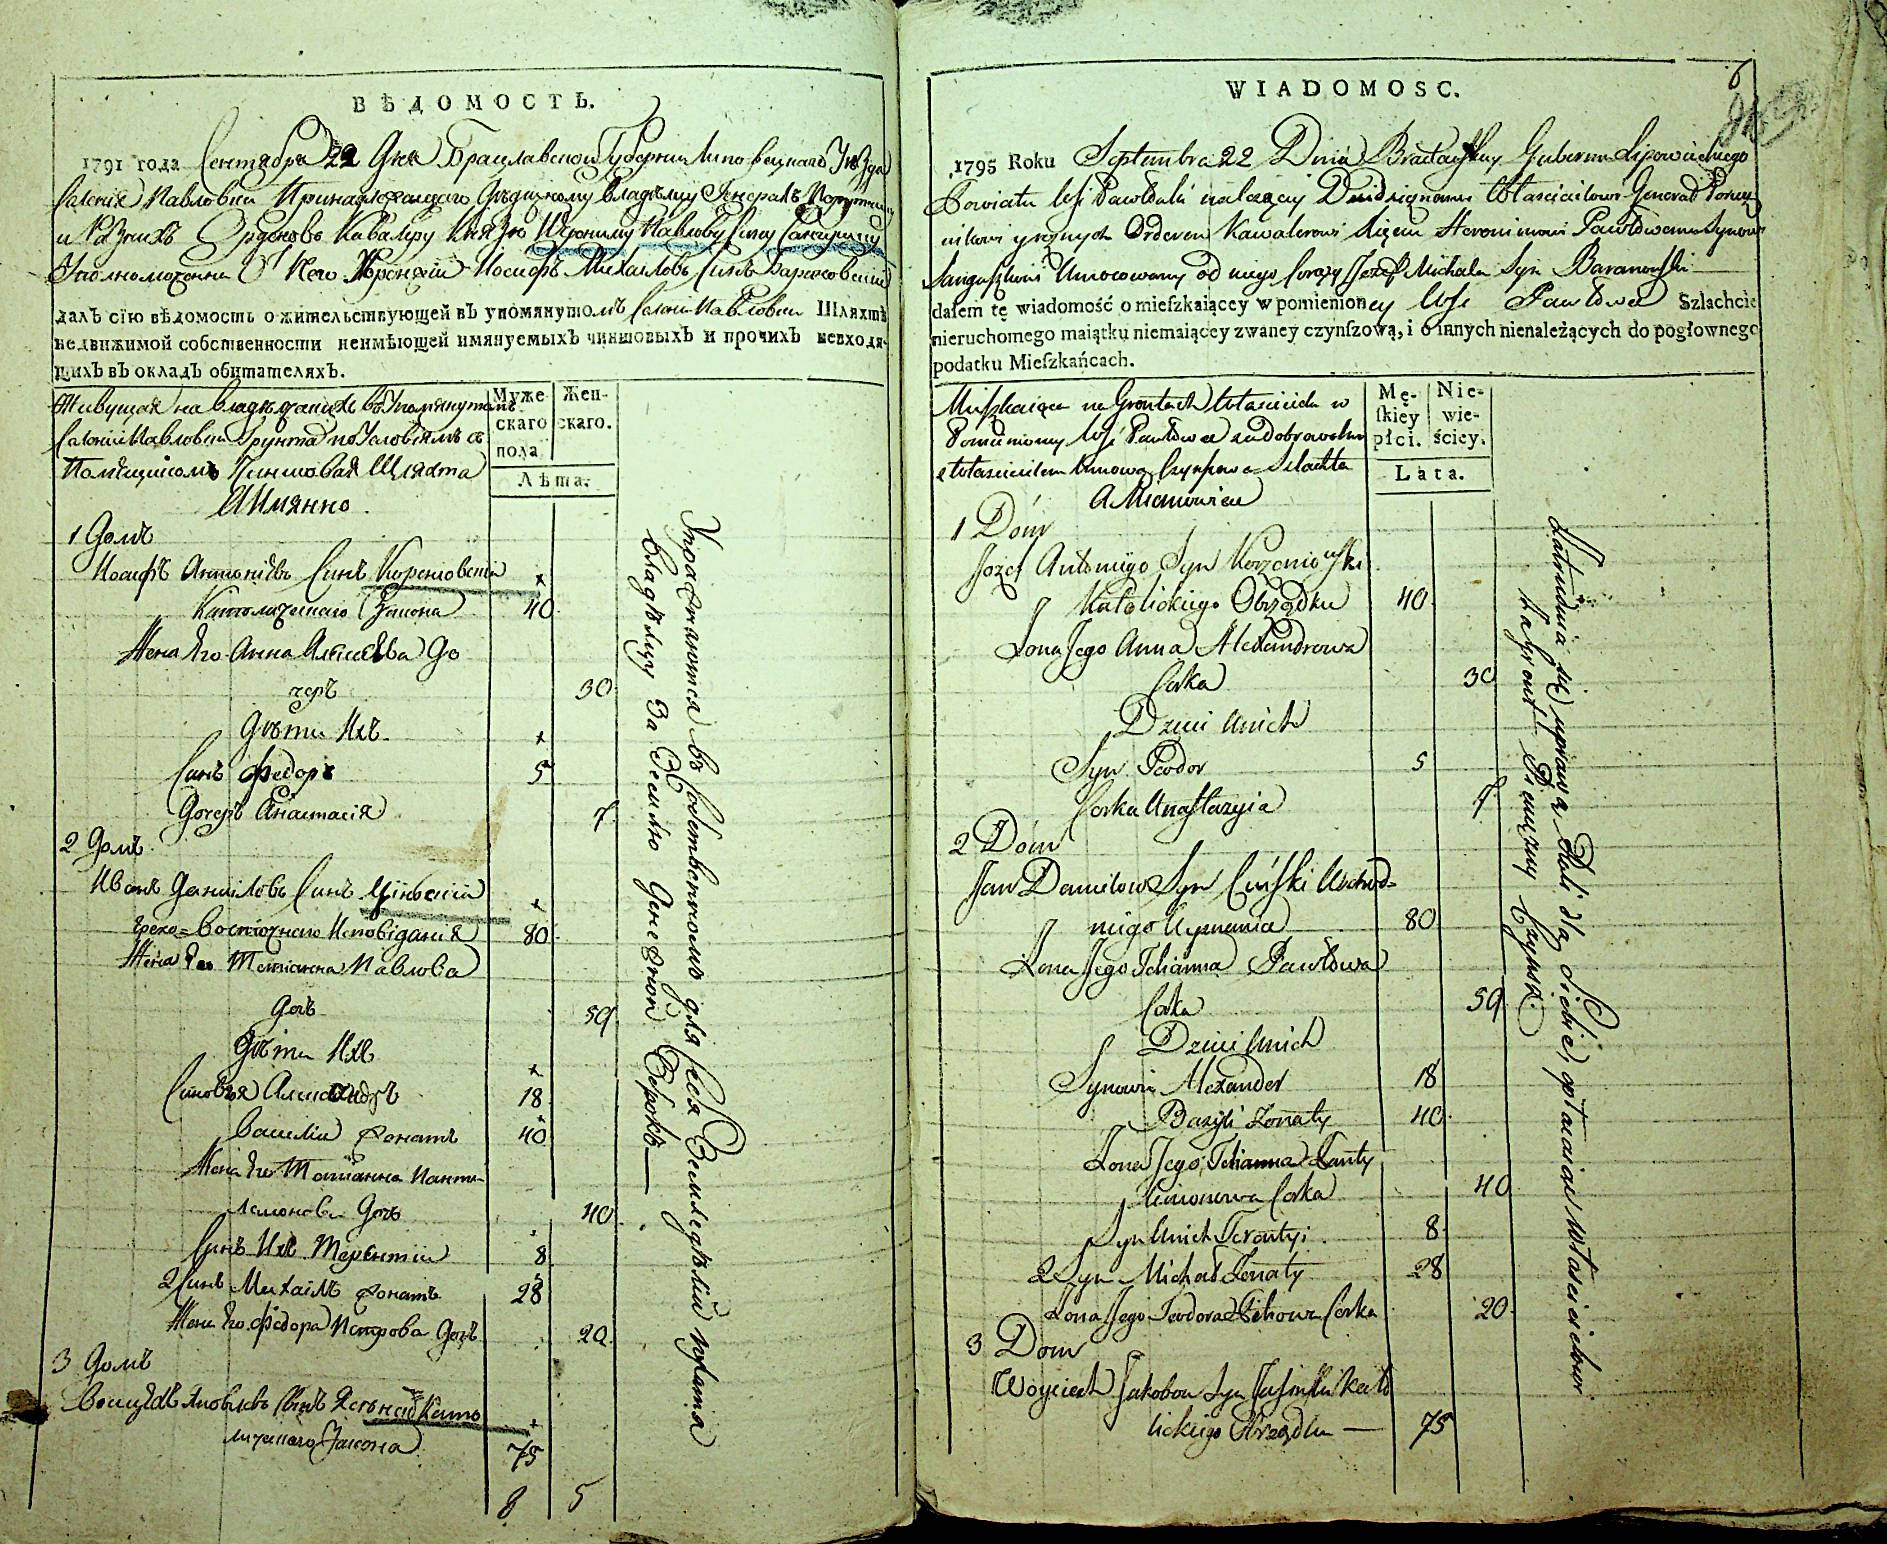 ВѢДОМОСТЬ.
1791 года Сентября 22 Дня Брацлавской Губернии Липовецкаго Уѣзда
Селенія Павловки Принадлежащаго Дѣдичному Владѣлцу Генералъ Порутчику
и Разныхъ Орденовъ Кавалеру Князю Іерониму Павлову Сину Сангушку
Уполномоченный отъ Него Иосифъ Михаиловъ Синъ Барановскій
далъ сію вѣдомость о жительствующей въ упомянутомъ Селеніи Павловки Шляхтѣ
недвижимой собственности неимѣющей имянуемыхъ чиншовыхъ и прочихъ невходя-
щихъ въ окладъ обитателяхъ.
Живущая на владѣлческихъ въ Упомянутомъ
Селеніи Павловки Грунта по Условіямъ съ
Помѣщикомъ Чиншовая Шляхта
А Имянно.
Муже-
скаго
пола.
Жен-
скаго.
Лѣта.
1 Домъ
Иосифъ Антоніевъ Синъ Корженіовскій
Католическаго Закона 40
Жена Его Анна Алексѣева До
черъ 30
Дѣти Ихъ
Синъ Федоръ 5
Дочеръ Анастасія 7
2 Домъ
Иванъ Даниловъ Синъ Цѣнскій
Греко=Восточнаго Исповіданія 80
Жена Его Татіанна Павлова
Дочь 59
Дѣти Ихъ
Синовья Александръ 18
Василій Жонатъ 40
Жена Его Татіанна Панти-
лимонова Дочь 40
Синъ Ихъ Терентій 8
2 Синъ Михаилъ Жонатъ 28
Жена Его Федора Петрова Дочь 20
3 Домъ
Войцѣхъ Яковлевъ Синъ Ясѣнскій Като
лическаго Закона 75
8 5
Упражняются въ собственномъ для себя Земледѣліи платя
владѣлцу За Землю Денежной Оброкъ
WIADOMOSC.
6
1795 Roku Septembra 22 Dnia Bracławskiey Gubernii Lipowieckiego
Powiatu Wsi Pawłówki należący Dziedzicznemu Właścicielowi Generał Porucz
nikowi y rożnych Orderow Kawalerowi Xięciu Heronimowi Pawłowemu Synowi
Sanguszkowi Umocowany od niego Józef Michała Syn Baranowski
dałem tę wiadomość o mieſzkaiącey w pomienioney Wsi Pawłówce Szlachcie
nieruchomego maiątku niemaiącey zwaney czynſzową, i o innych nienależących do pogłownego
podatku Mieſzkańcach.
Mieszkaiąca na Gruntach Właściciela w
Pomienioney Wsi Pawłówce za dobrowolną
z Właścicielem Umową Czynszowa Szlachta
A Mianowicie
Mę-
ſkiey
płci.
Nie-
wie-
ściey.
Lata.
1 Dóm
Jozef Antoniygo Syn Korzeniowski
Katolickiego Obrządku 40
Żona Jego Anna Alexandrowa
Corka 30
Dzieci Unich
Syn Teodor 5
Corka Anastazyia 7
2 Dóm
Jan Daniłow Syn Cinski Wschod-
niego Wyznania 80
Żona Jego Tatianna Pawłowa
Corka 59
Dzieci Unich
Synowie Alexander 18
Bazyli Żonaty 40
Żona Jego Tatianna Panty
limonowa Corka 40
Syn Unich Terentyi 8
2 Syn Michał Żonaty 28
Żona Jego Teodora Corka 20
3 Dom
Woyciech Jakobow Syn Jasinski Kato
lickiego Obrządku — 75
Zatrudnia się uprawą Roli dla Siebie, opłacaiąc Właścicielowi
Za grunt Pieniężny Czynsz.